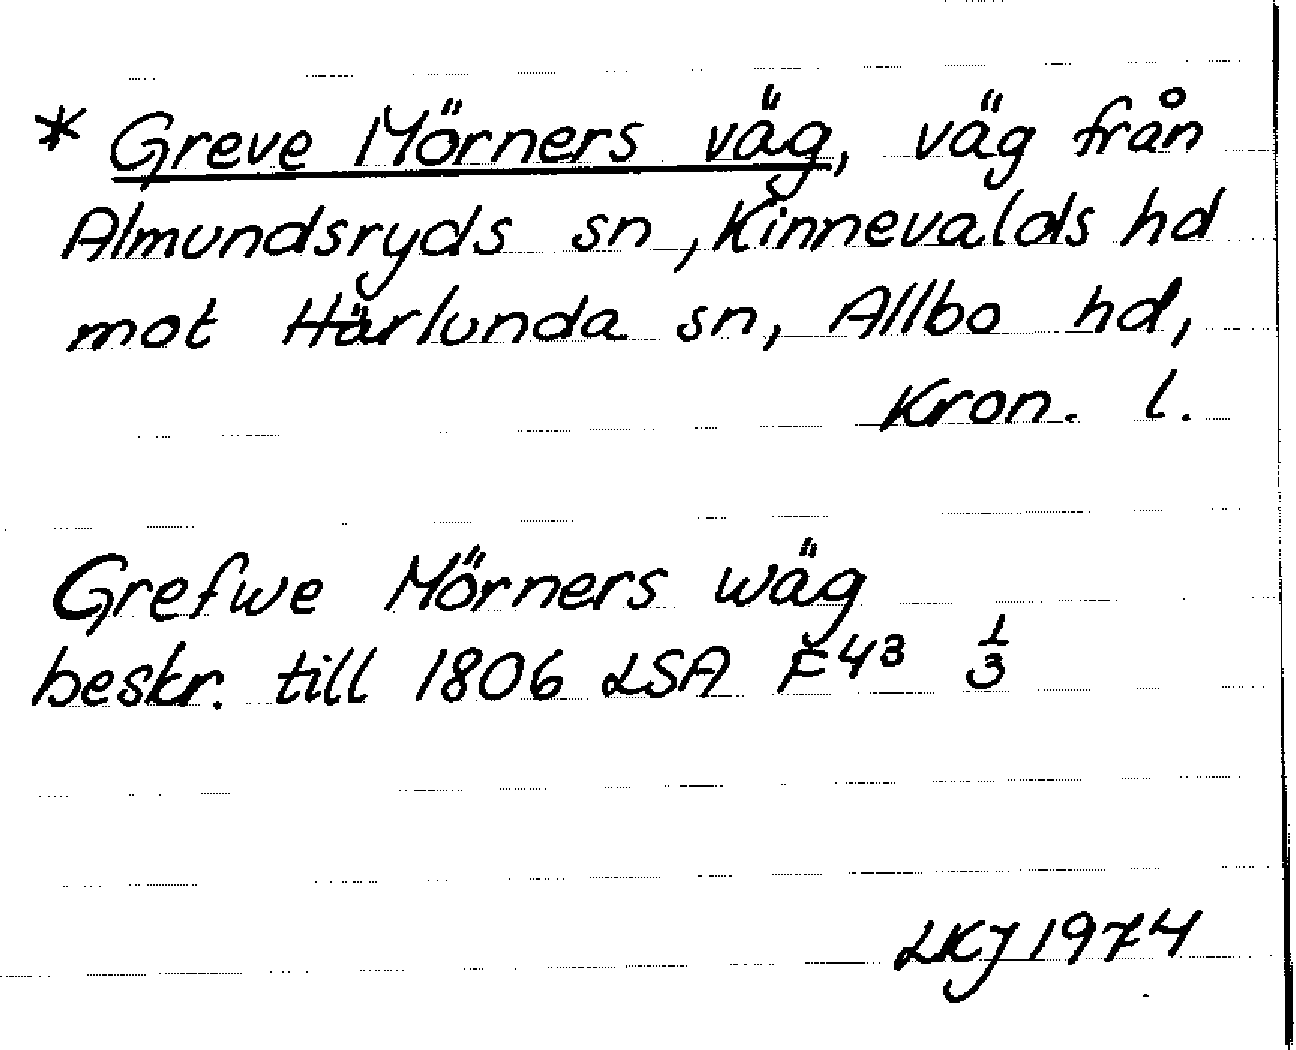 * Greve Mörners väg, väg från
Almundsryds sn, Kinnevalds hd
mot Härlunda sn, Allbo hd,
Kron. l.
Grefwe Mörners wäg
beskr. till 1806 LSA F43 1/3
LKJ 1974